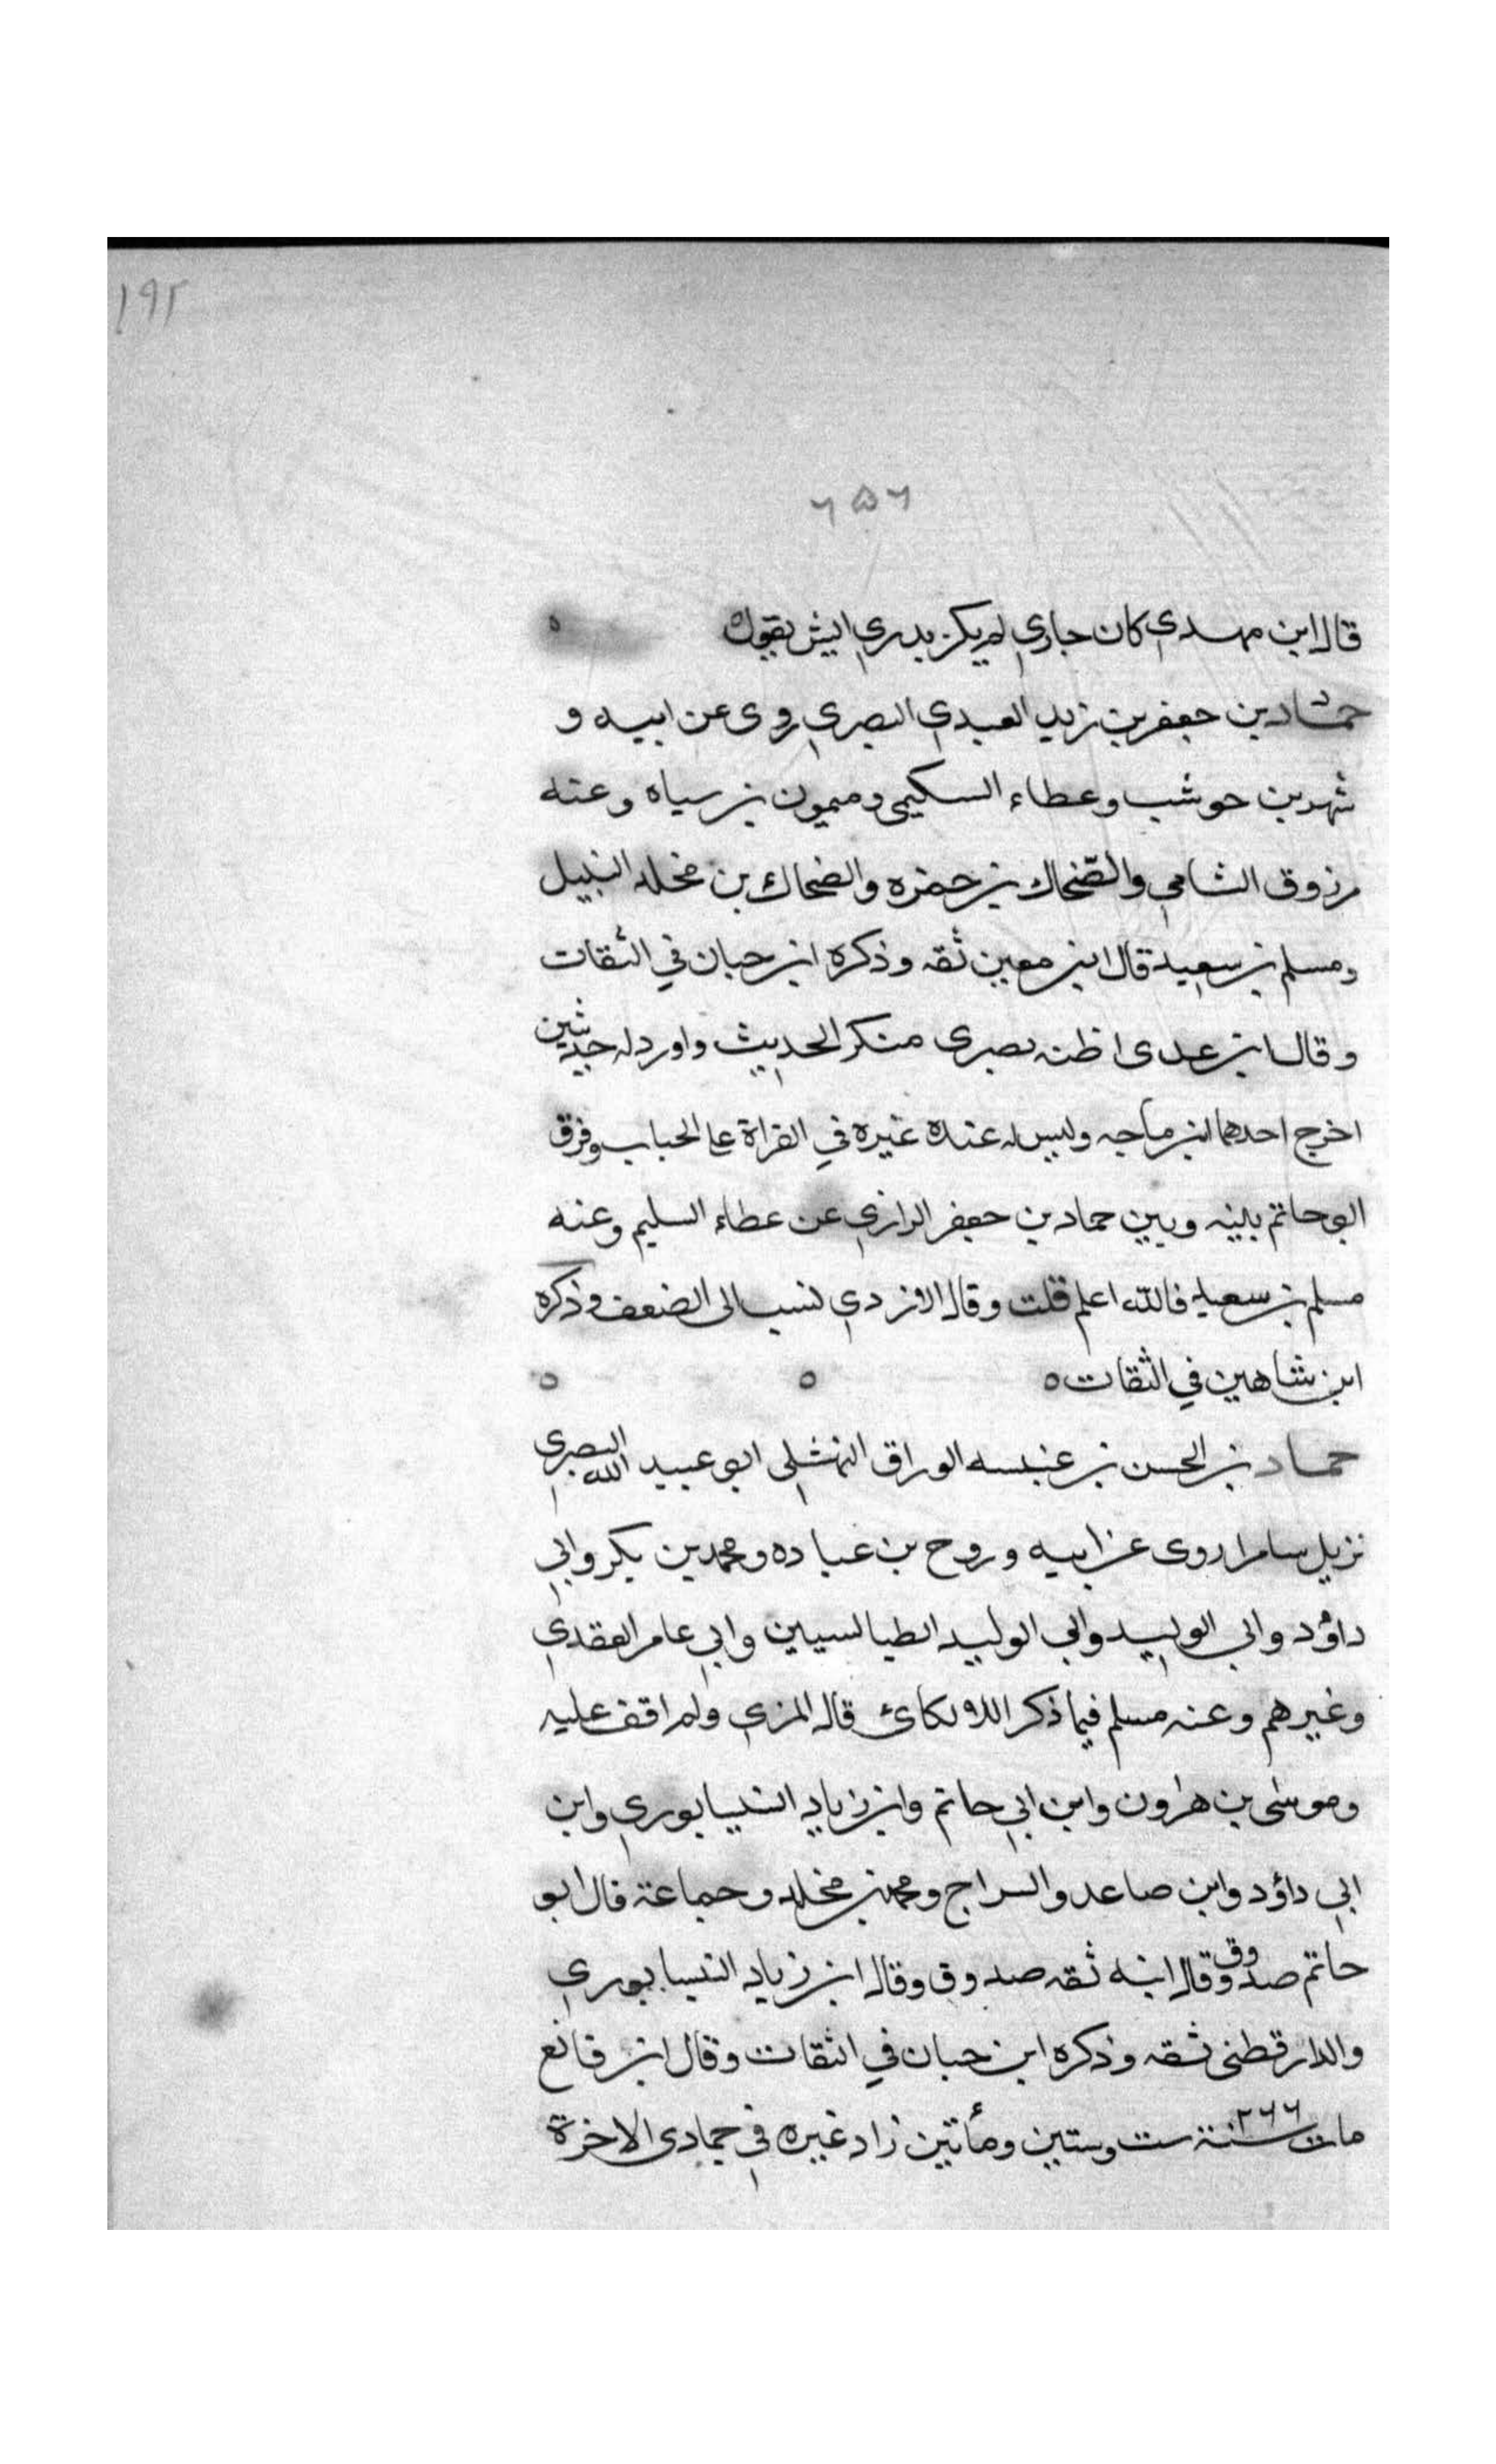 ١٩٢
٦٥٦
قال ابن مهدي كان جاري لم يكن يدري ايش يقول ه
حماد بن جعفر بن زيد العبدي البصري روى عن ابيه و
شهر بن حوشب وعطاء السكيمي وميمون بن سياه وعنه
مرزوق الشامي والضحاك بن حمزه والضحاك بن مخلد النبيل
ومسلم بن سعيد قال ابن معين ثقه وذكره ابن حبان في الثقات
وقال ابن عدى اظنه بصرى منكر الحديث واورد له حديثين
اخرج احدهما ابن ماجه وليس له عنده غيره في القراة على الجباب وفرق
ابو حاتم بينه وبين حماد بن جعفر الرازي عن عطاء السليم وعنه
مسلم بن سعيد فالله اعلم قلت وقال الازدي نسب الى الضعف وذكره
ابن شاهين في الثقات ه ه ه
حماد بن الحسن بن عنبسه الوراق النهشلي ابو عبيد الله البصري
نزيل سامرا روى عن ابيه وروح بن عباده ومحمد بن بكر وابي
داؤد وابي الوليد وابي الوليد الطيالسيين وابي عامر العقدي
وغيرهم وعنه مسلم فيما ذكر اللالكائ قال المزي ولم اقف عليه
وموسى بن هارون وابن ابي حاتم وابن زياد النيسابوري وابن
ابي داؤد وابن صاعد والسراج ومحمد بن مخلد وجماعة قال ابو
حاتم صدوق وقال ابنه ثقه صدوق وقال ابن زياد النيسابوري
والدارقطنى ثقه وذكره ابن حبان في الثقات وقال ابن قانع
مات سنة ٢٦٦ ست وستين ومأتين زاد غيره في جمادى الاخرة